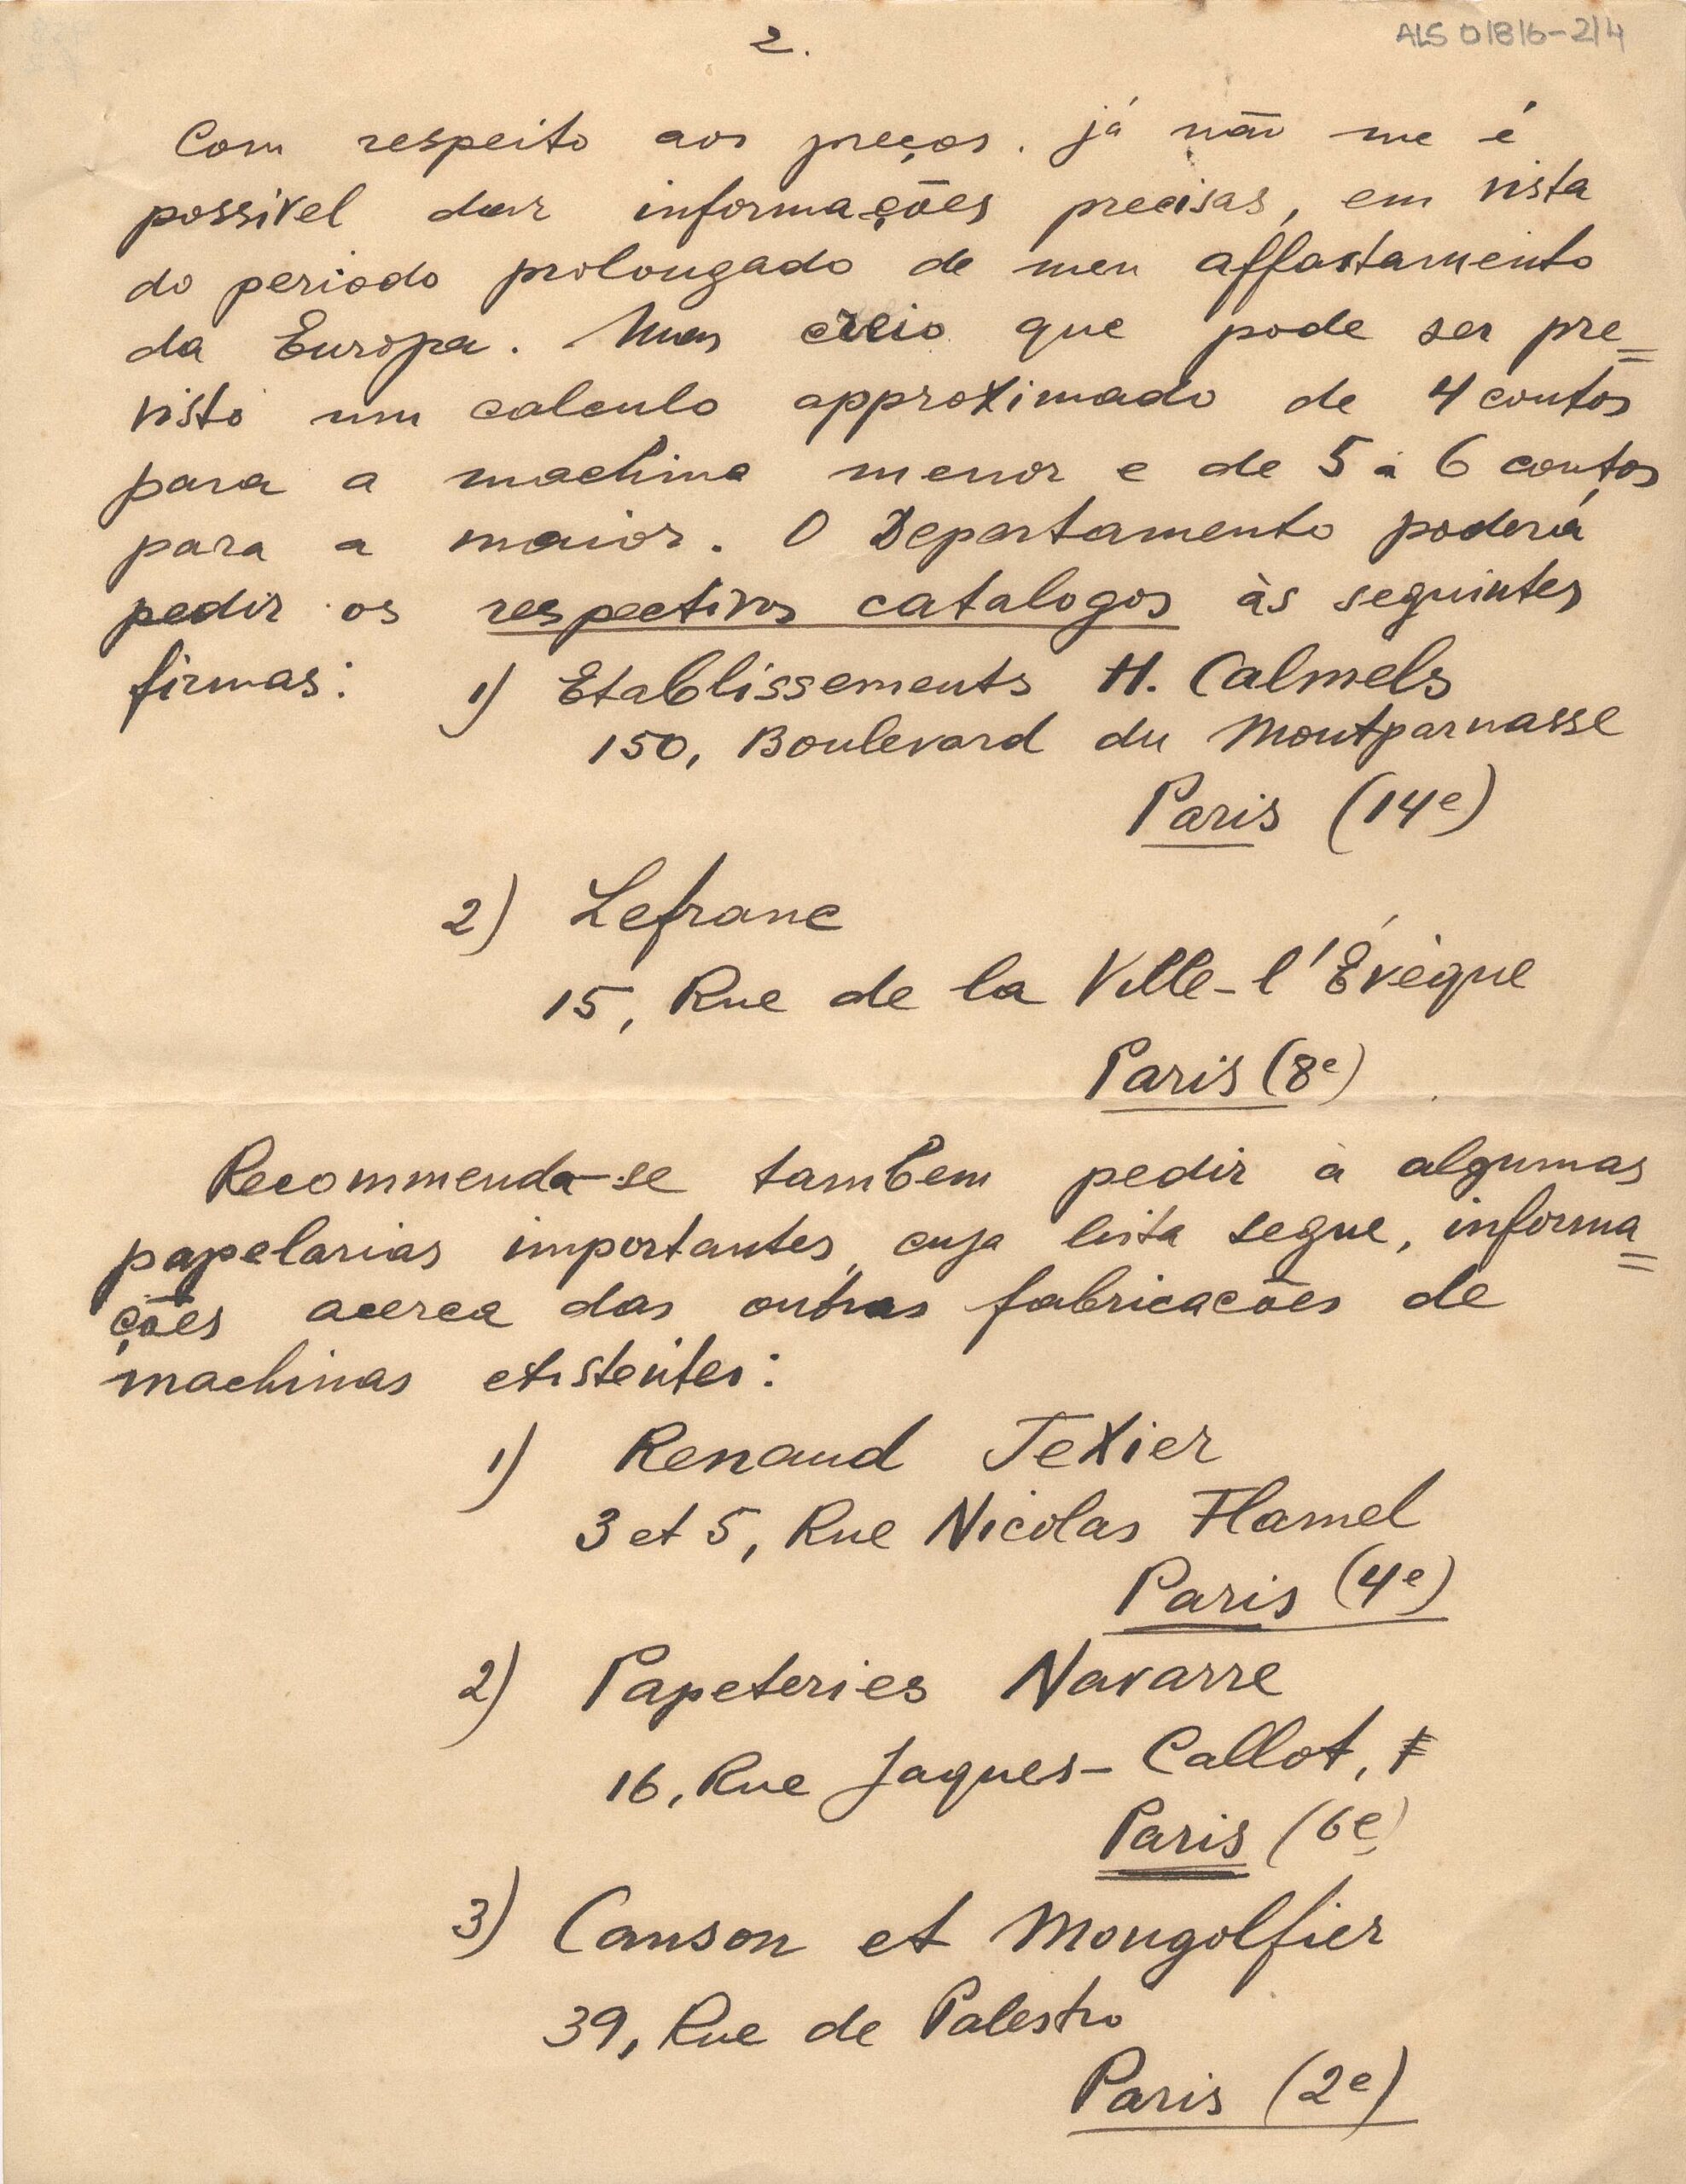 2.
ALS 01816-2/4
Com respeito aos preços. já não me é
possivel dar informações precisas, em vista
do periodo prolongado de meu affastamento
da Europa. Mas creio que pode ser pre=
visto um calculo approximado de 4 contos
para a machina menor e de 5 a 6 contos
para a maior. O Departamento poderá
pedir os respectivos catalogos às seguintes
firmas: 1) Etablissements H. Calmels
150, Boulevard du Montparnasse
Paris (14e)
2) Lefranc
15, Rue de la Ville-l'Évèque
Paris (8e)
Recommenda-se tambem pedir à algumas
papelarias importantes, cuja lista segue, informa=
ções acerca das outras fabricacões de
machinas existentes:
1) Renaud Texier
3 et 5, Rue Nicolas Flamel
Paris (4e)
2) Papeteries Navarre
16, Rue Jaques-Callot,
Paris (6e)
3) Canson et Mongolfier
39, Rue de Palestro
Paris (2e)